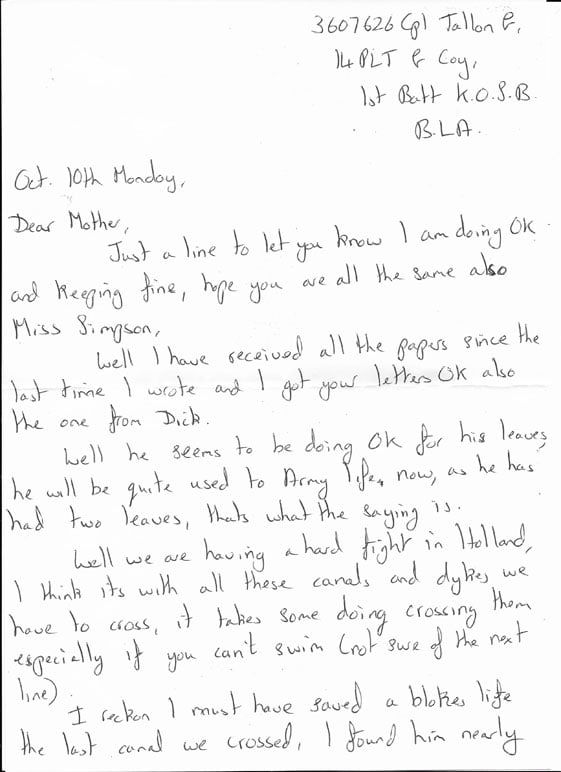 3607626 Cpl Tallon E,
14 PLT E Coy,
1st Batt K.O.S.B.
B.L.A.
Oct. 10th Monday,
Dear Mother,
Just a line to let you know I am doing OK
and keeping fine, hope you are all the same also
Miss Simpson,
Well I have received all the papers since the
last time I wrote and I got your letters OK also
the one from Dick.
Well he seems to be doing OK for his leaves,
he will be quite used to Army life, now, as he has
had two leaves, thats what the saying is.
Well we are having a hard fight in Holland,
I think its with all these canals and dykes we
have to cross, it takes some doing crossing them
especially if you can't swim (not swe of the next
line)
I reckon I must have saved a blokes life
the last canal we crossed, I found him nearly